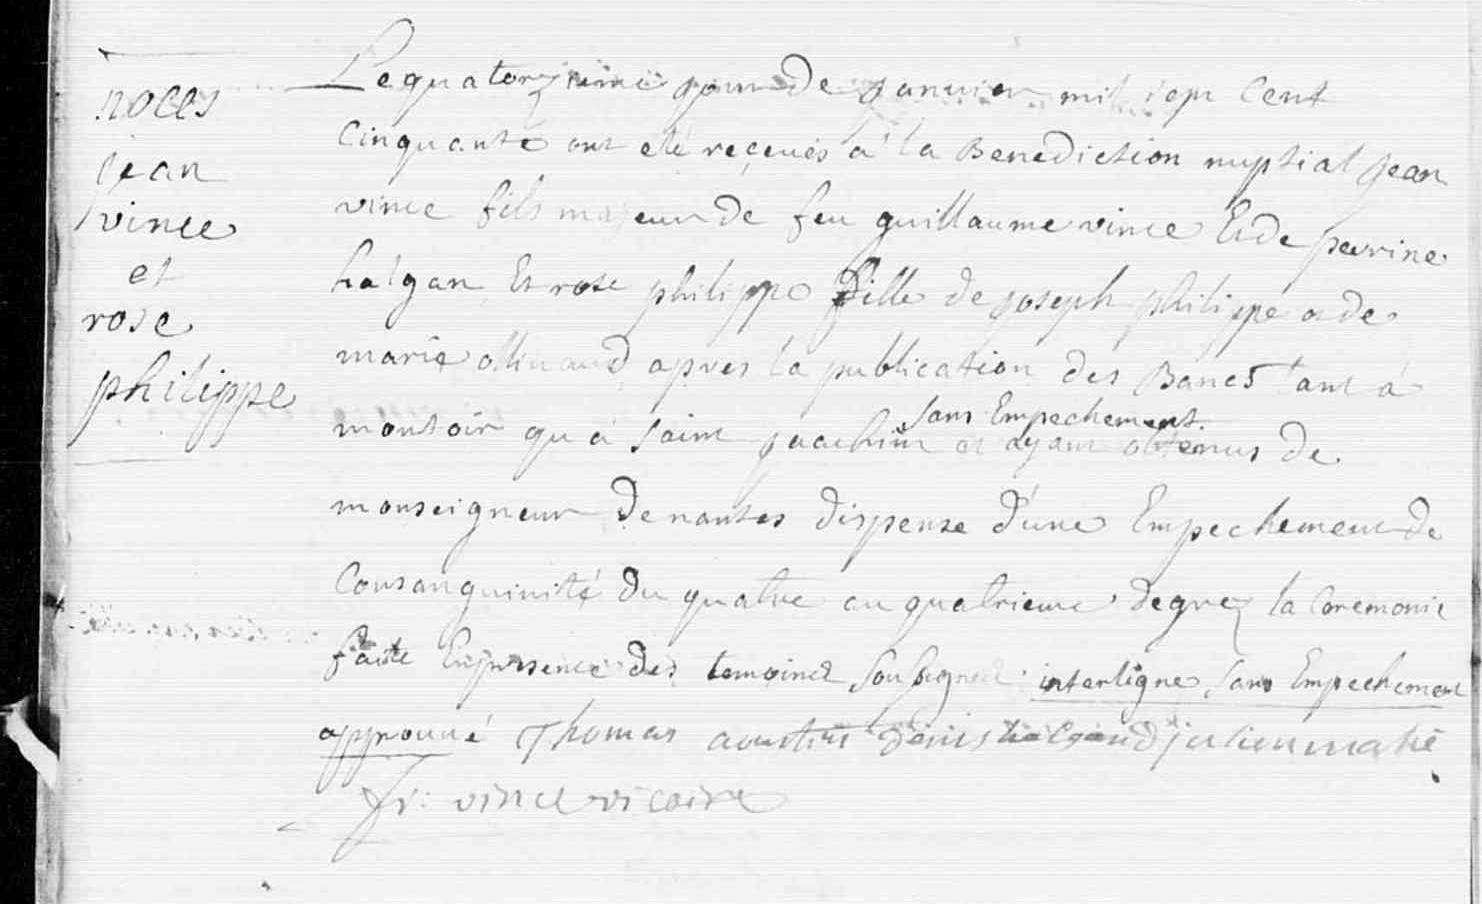 noces
jean
vince
et
rose
philippe
Le quatorzieme jour de janvier mil sept Cent
Cinquante ont eté reçeues a la Benediction nuptial jean
vince fils majeur de feu guillaume vince Et de perrine
halgan Et rose philippe fille de joseph philippe et de
marie après la publication des Bancs tant à
sans Empechement
montoir qu'à saint joachim et ayant obtenus de
monseigneur de nantes dispense d'une Empechement de
Consanguinité du quatre au quatrieme degrez la Ceremonie
faite En presence des temoins Soussignés interligne sans Empechement
approuvé Thomas denis julien mahé
fr: vince vicaire